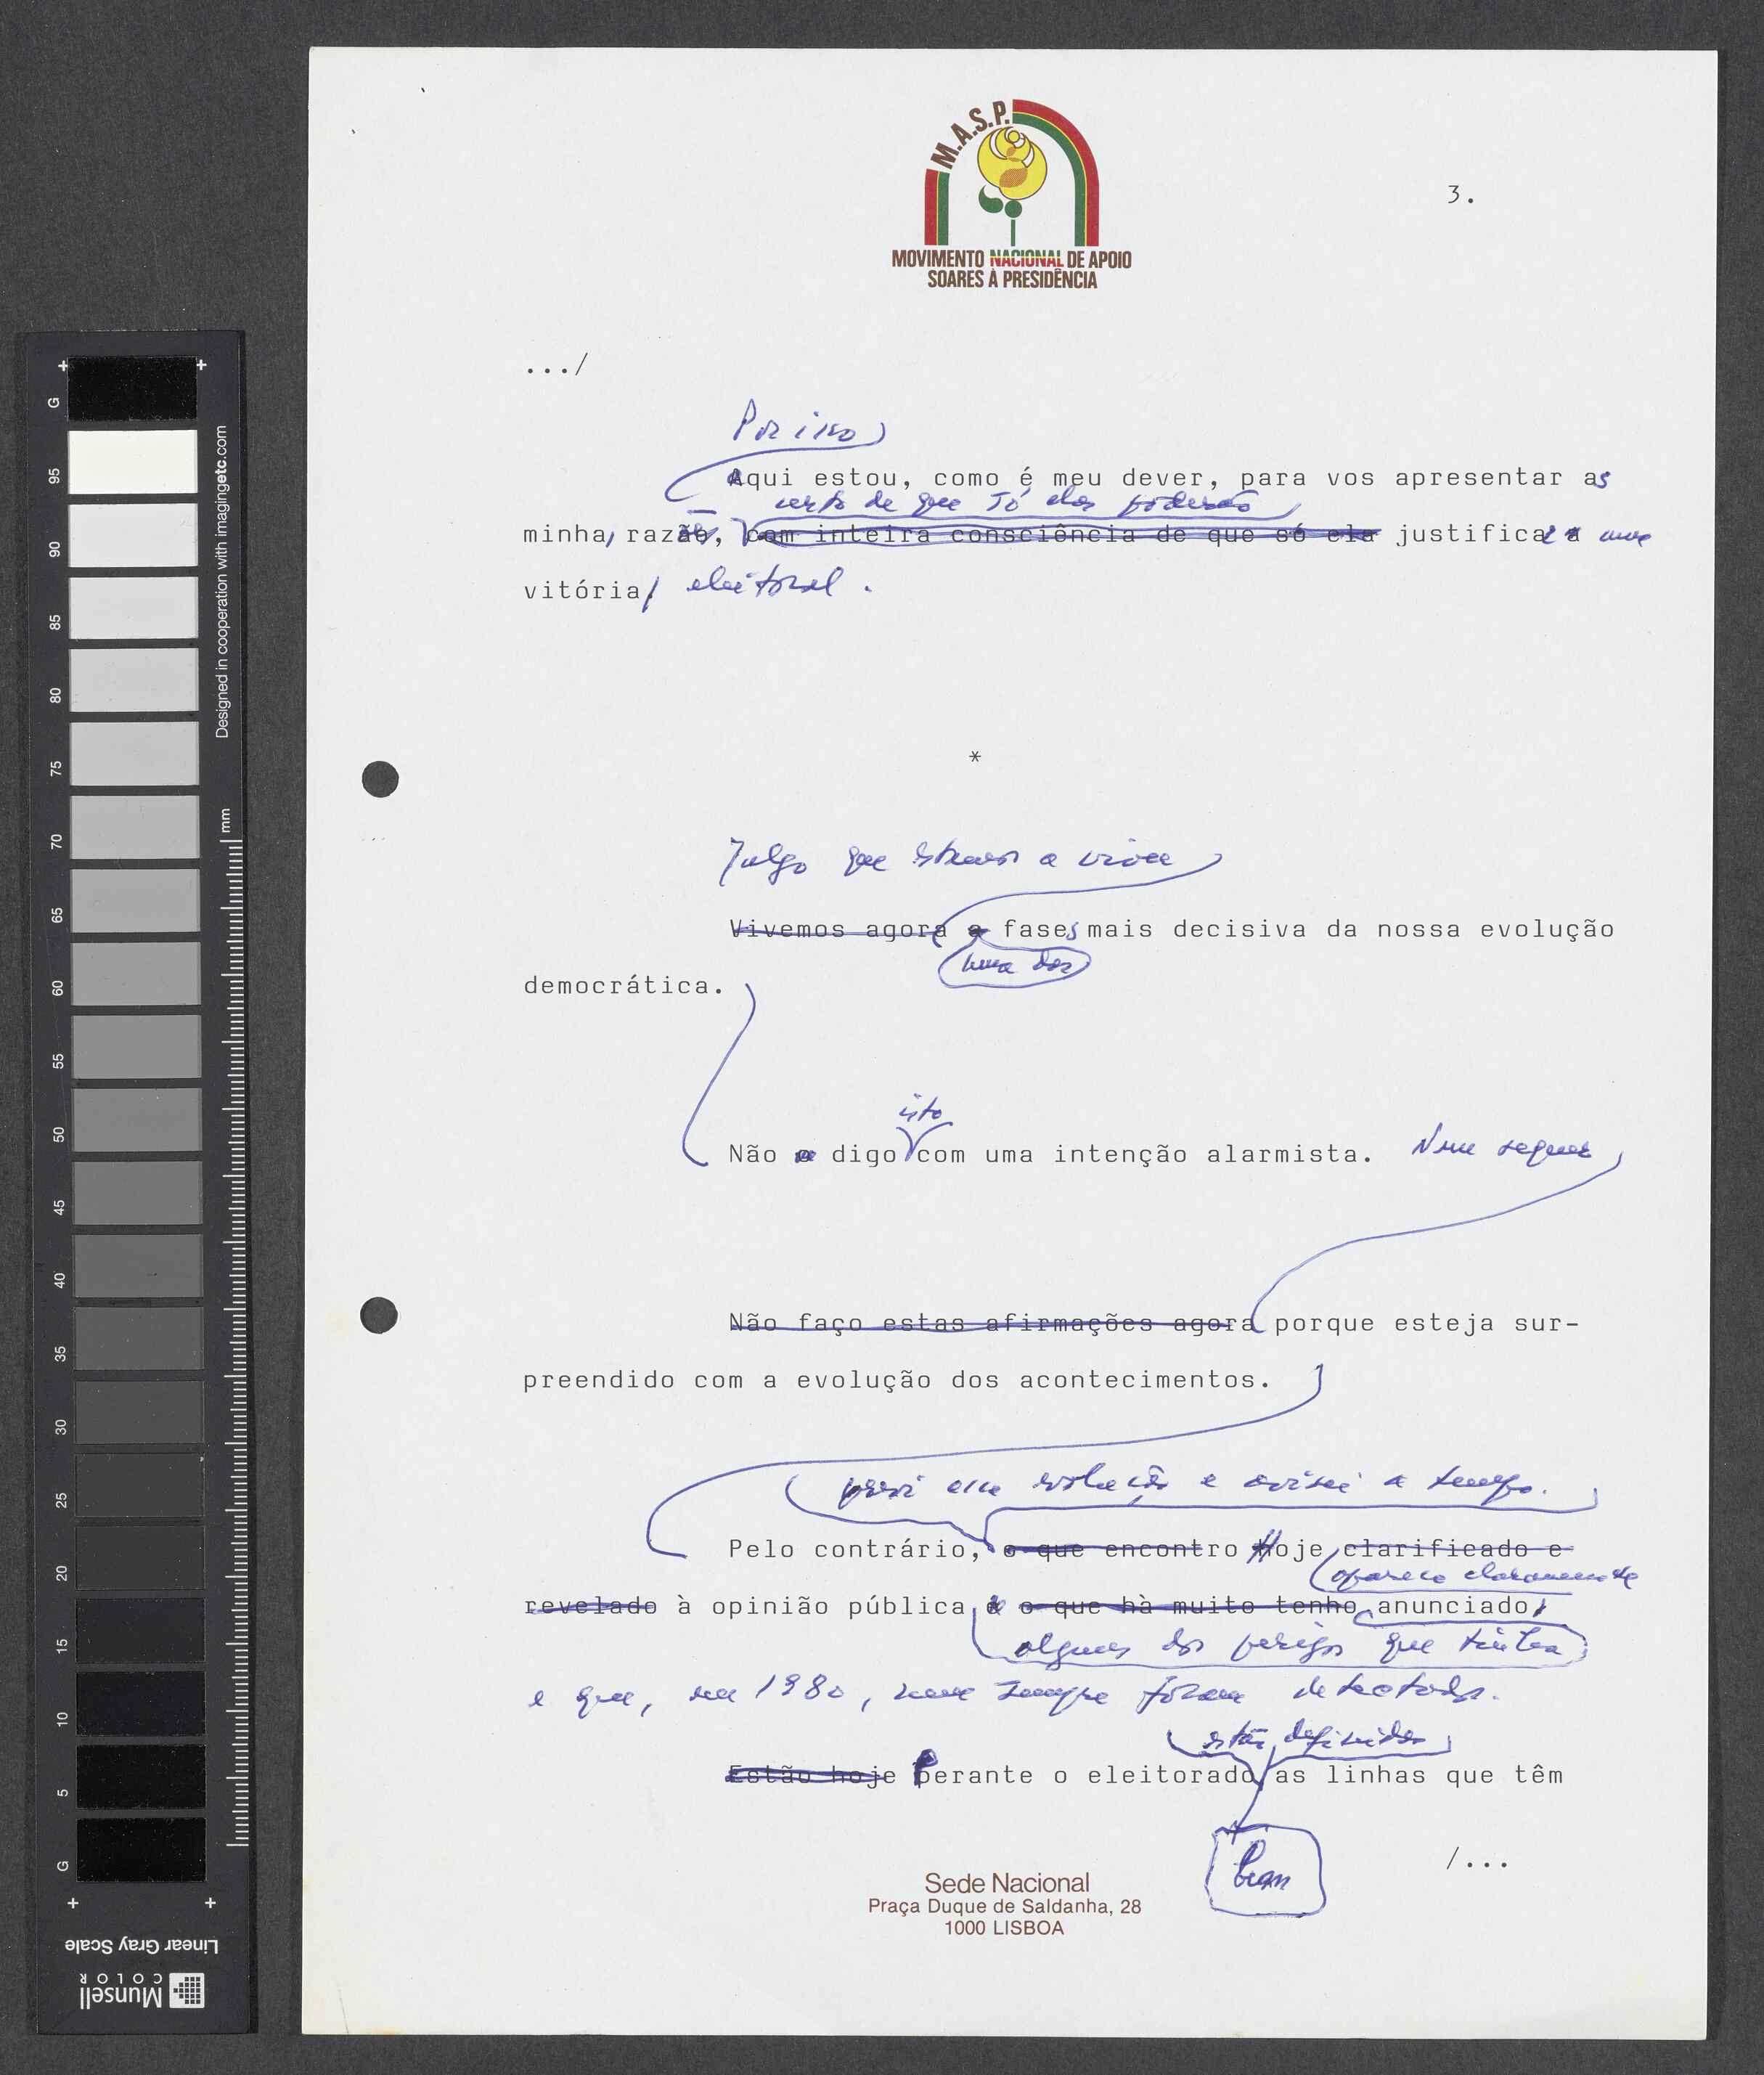 M.A.S.P.
MOVIMENTO NACIONAL DE APOIO
SOARES À PRESIDÊNCIA
3.
.../
Por isso
aqui estou, como é meu dever, para vos apresentar as
certo de que só elas poderão
minhas razões, com inteira consciência de que só ela justificar uma
vitória eleitoral.
*
Julgo que estamos a viver
Vivemos agora a fases mais decisiva da nossa evolução
uma das
democrática.
isto
Não o digo com uma intenção alarmista. Nem sequer
Não faço estas afirmações agora porque esteja sur-
preendido com a evolução dos acontecimentos.
previ essa evolução e avisei a tempo.
Pelo contrário, o que encontro Hoje clarificado e
aparece claramente
revelado à opinião pública é o que hà muito tenho anunciado,
alguns dos perigos que tinha
e que, em 1980, nem sempre foram detectados.
estão definidas
Estão hoje Perante o eleitorado as linhas que têm
bem
/...
Sede Nacional
Praça Duque de Saldanha, 28
1000 LISBOA
G
95
90
85
80
75
70
65
60
55
50
45
40
35
30
25
20
15
10
5
G
Designed in cooperation with imagingetc.com
mm
Linear Gray Scale
Munsell
COLOR